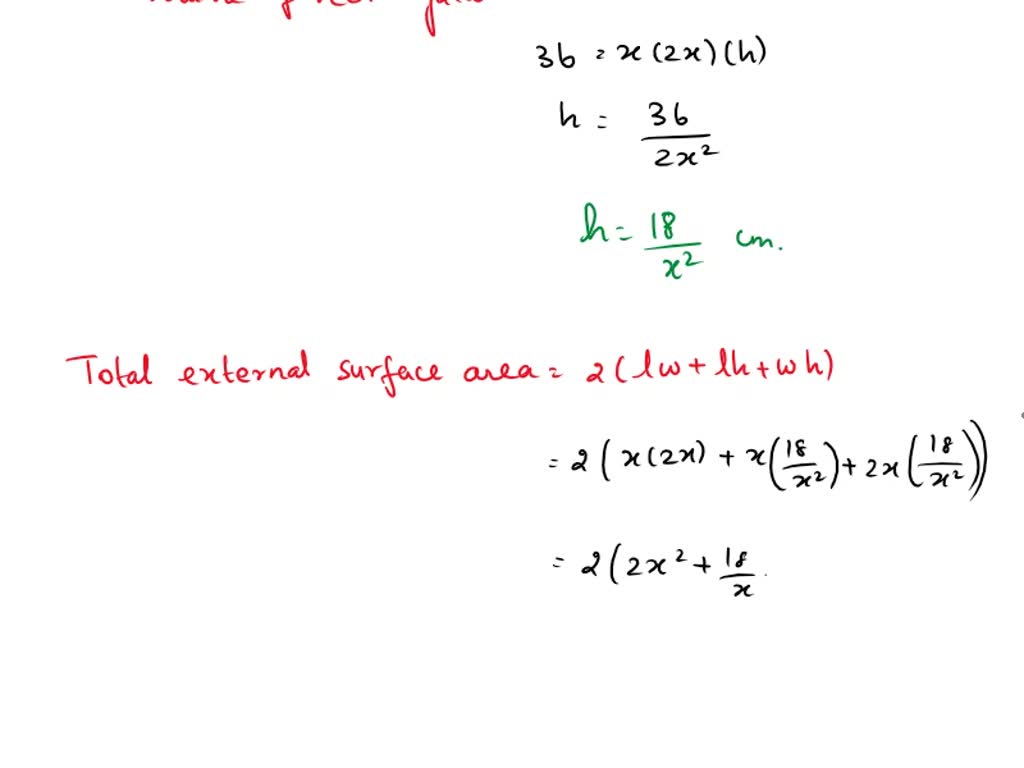 36 = x(2x)(h)
h = 36/2x²
h = 18/x² cm.
Total external surface area = 2(lw + lh + wh)
= 2(x(2x) + x(18/x²) + 2x(18/x²))
= 2(2x² + 18/x